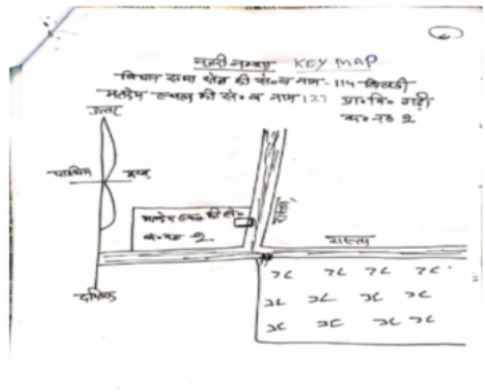 नजरी नक्शा KEY MAP
विधान सभा क्षेत्र की सं० व नाम - 114
मतदेय स्थल की सं० व नाम 127 प्रा० वि० गढ़ी
क० नं० 2
उत्तर
पश्चिम पूरब
मतदेय स्थल की सं०
क० नं० 2
रास्ता
रास्ता
दक्षिण